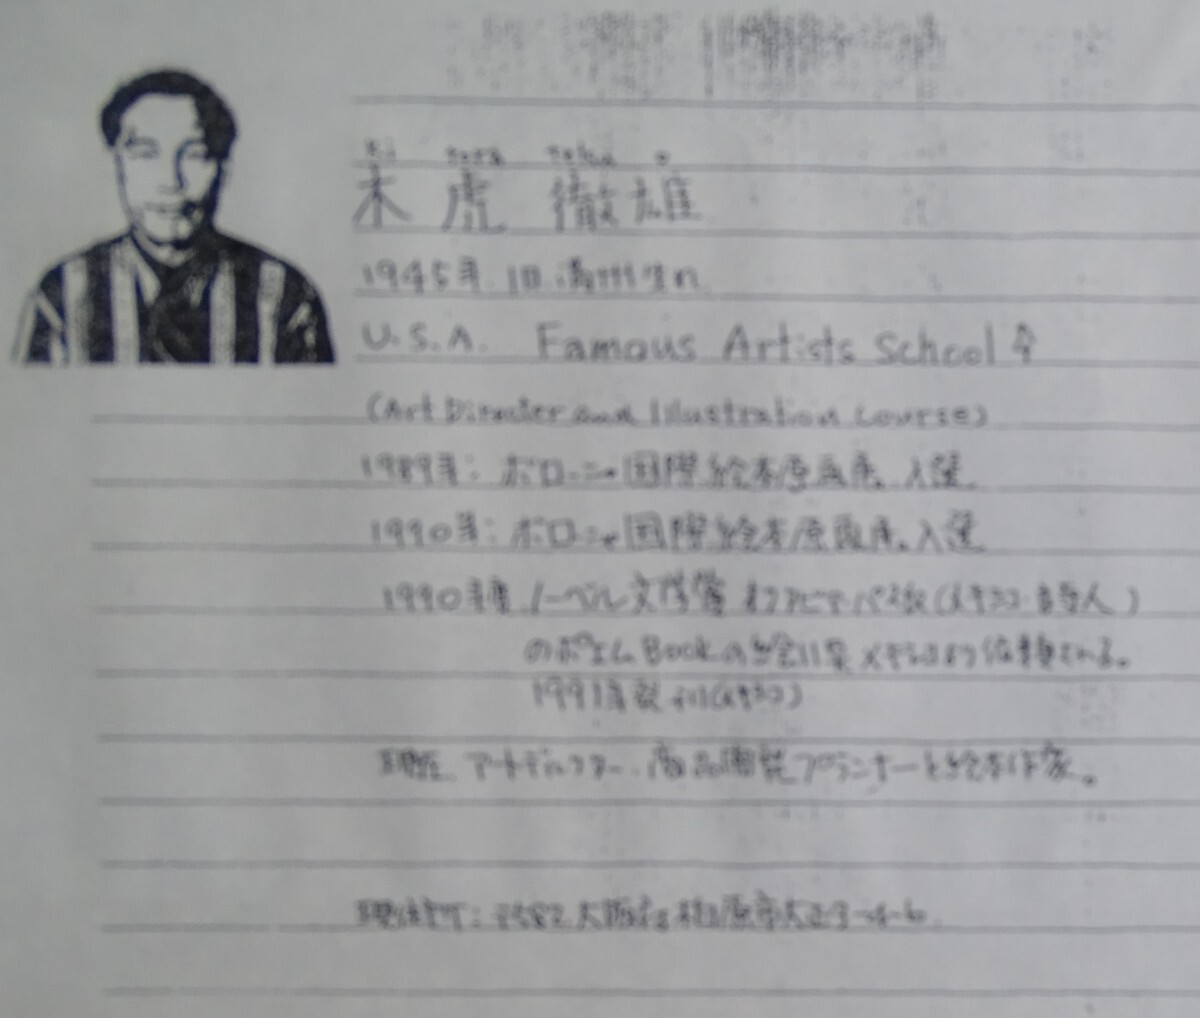 Ki tora Tetsu o
木虎 徹雄
1945年.1日.満州生れ
U.S.A. Famous Artists School 卆
(Art Director and Illustration Course)
1989年: ボローニャ国際絵本原画展.入選
1990年: ボローニャ国際絵本原画展.入選
1990年度 ノーベル文学賞 オクタビオ・パス氏(メキシコ・詩人)
のポエムBookの絵 メキシコより依頼される。
1991年発刊(メキシコ)
現在 アートディレクター.商品開発プランナーと絵本作家。
現住所: 〒582 大阪府柏原市大正3-4-6